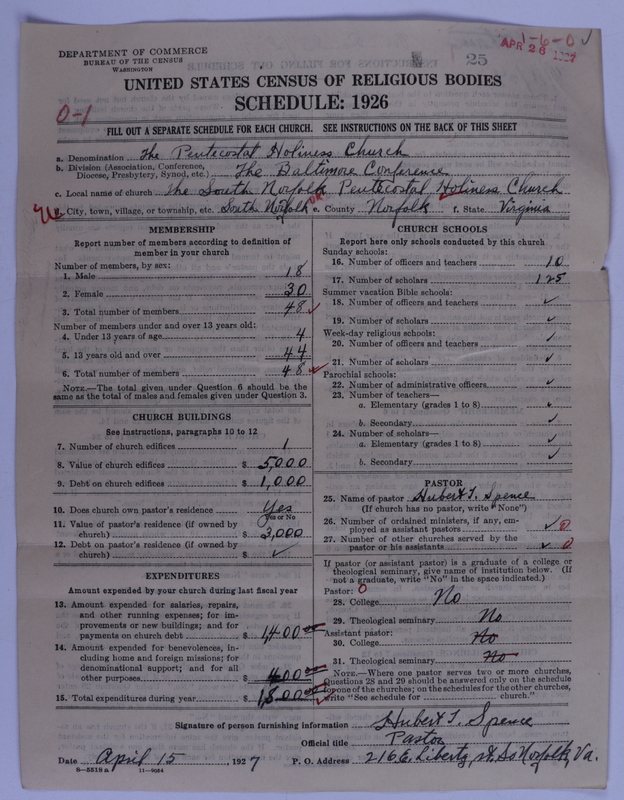 DEPARTMENT OF COMMERCE
BUREAU OF THE CENSUS
WASHINGTON
25
1-6-0 ✓
APR 26 1927
UNITED STATES CENSUS OF RELIGIOUS BODIES
SCHEDULE: 1926
0-1
FILL OUT A SEPARATE SCHEDULE FOR EACH CHURCH. SEE INSTRUCTIONS ON THE BACK OF THIS SHEET
a. Denomination The Pentecostal Holiness Church
b. Division (Association, Conference, Diocese, Presbytery, Synod, etc.) The Baltimore Conference
c. Local name of church The South Norfolk Pentecostal Holiness Church
City, town, village, or township, etc. South Norfolk e. County Norfolk f. State Virginia
MEMBERSHIP
Report number of members according to definition of
member in your church
Number of members, by sex:
1. Male 18
2. Female 30
3. Total number of members 48 ✓
Number of members under and over 13 years old:
4. Under 13 years of age 4
5. 13 years old and over 44
6. Total number of members 48 ✓
NOTE.—The total given under Question 6 should be the
same as the total of males and females given under Question 3.
CHURCH BUILDINGS
See instructions, paragraphs 10 to 12
7. Number of church edifices 1
8. Value of church edifices $ 5,000
9. Debt on church edifices $ 1,000
10. Does church own pastor's residence Yes
Yes or No
11. Value of pastor's residence (if owned by
church) $ 3,000
12. Debt on pastor's residence (if owned by
church) $ ✓
EXPENDITURES
Amount expended by your church during last fiscal year
13. Amount expended for salaries, repairs,
and other running expenses; for im-
provements or new buildings; and for
payments on church debt $ 1,400 00
14. Amount expended for benevolences, in-
cluding home and foreign missions; for
denominational support; and for all
other purposes 400 00
15. Total expenditures during year $ 1,800 00 ✓
CHURCH SCHOOLS
Report here only schools conducted by this church
Sunday schools:
16. Number of officers and teachers 10
17. Number of scholars 125
Summer vacation Bible schools:
18. Number of officers and teachers ✓
19. Number of scholars ✓
Week-day religious schools:
20. Number of officers and teachers ✓
21. Number of scholars ✓
Parochial schools:
22. Number of administrative officers ✓
23. Number of teachers—
a. Elementary (grades 1 to 8) ✓
b. Secondary ✓
24. Number of scholars—
a. Elementary (grades 1 to 8) ✓
b. Secondary ✓
PASTOR
25. Name of pastor Hubert T. Spence
(If church has no pastor, write "None")
26. Number of ordained ministers, if any, em-
ployed as assistant pastors ✓ 0
27. Number of other churches served by the
pastor or his assistants ✓ 0
If pastor (or assistant pastor) is a graduate of a college or
theological seminary, give name of institution below. (If
not a graduate, write "No" in the space indicated.)
Pastor: 0
28. College No
29. Theological seminary No
Assistant pastor:
30. College No
31. Theological seminary No
NOTE.—Where one pastor serves two or more churches,
Questions 28 and 29 should be answered only on the schedule
for one of the churches; on the schedules for the other churches,
write "See schedule for church."
Signature of person furnishing information Hubert T. Spence
Official title Pastor
Date April 15 1927 P. O. Address 216 E. Liberty, St. So Norfolk, Va.
8—5518 a 11—9054